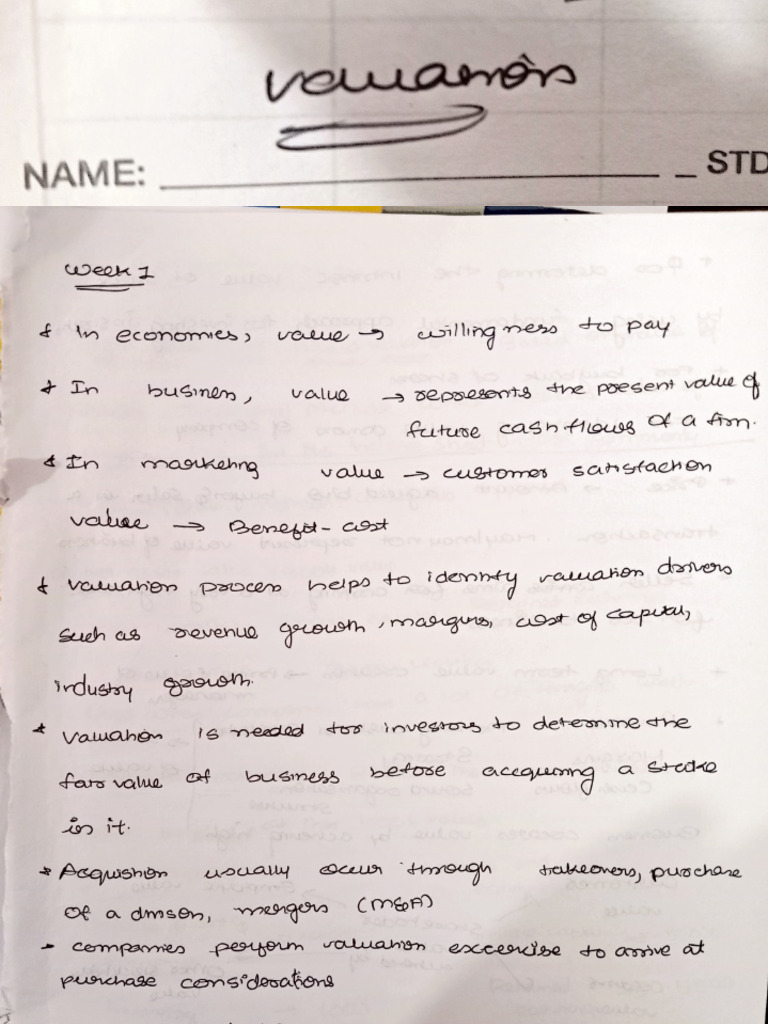 valuations
NAME: STD
Week 1
* In economies, value → willingness to pay
* In business, value → represents the present value of
future cash flows of a firm.
* In marketing value → customer satisfaction
value → Benefit - cost
* valuation process helps to identify valuation drivers
such as revenue growth, margins, cost of capital,
industry growth.
* valuation is needed for investors to determine the
fair value of business before accquring a stake
in it.
* Acquistion usually occur through takeovers, purchase
of a division, mergers (M&A)
- companies perform valuation excercise to arrive at
purchase considerations